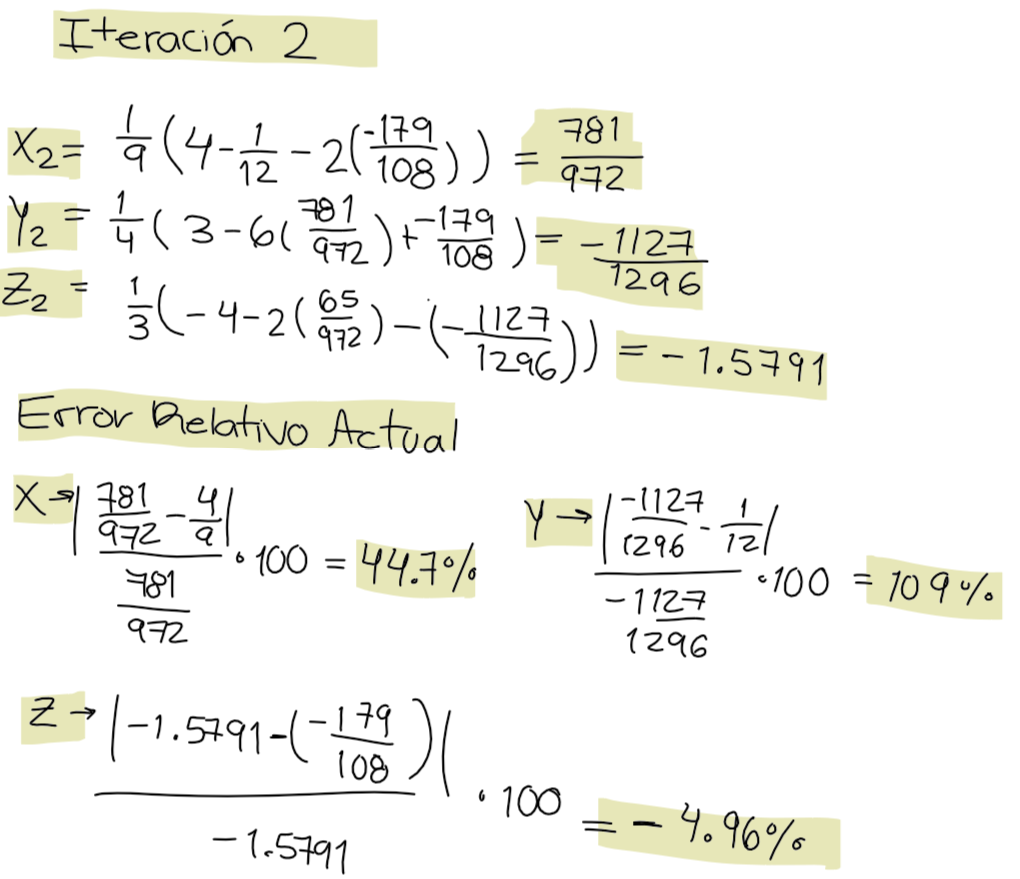 Iteración 2
X₂ = 1/9 (4 - 1/12 - 2(-179/108)) = 781/972
Y₂ = 1/4 (3 - 6(781/972) + -179/108) = -1127/1296
Z₂ = 1/3 (-4 - 2(65/972) - (-1127/1296)) = -1.5791
Error Relativo Actual
X → |781/972 - 4/9| / 781/972 · 100 = 44.7%
Y → |-1127/1296 - 1/12| / -1127/1296 · 100 = 109%
Z → |-1.5791 - (-179/108)| / -1.5791 · 100 = -4.96%